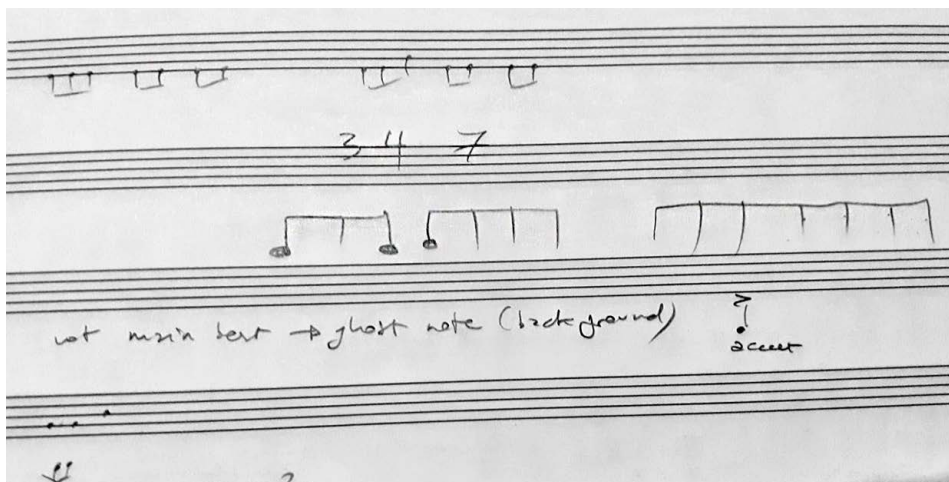 3 4 7
not main beat → ghost note (back ground)
>
accent
?